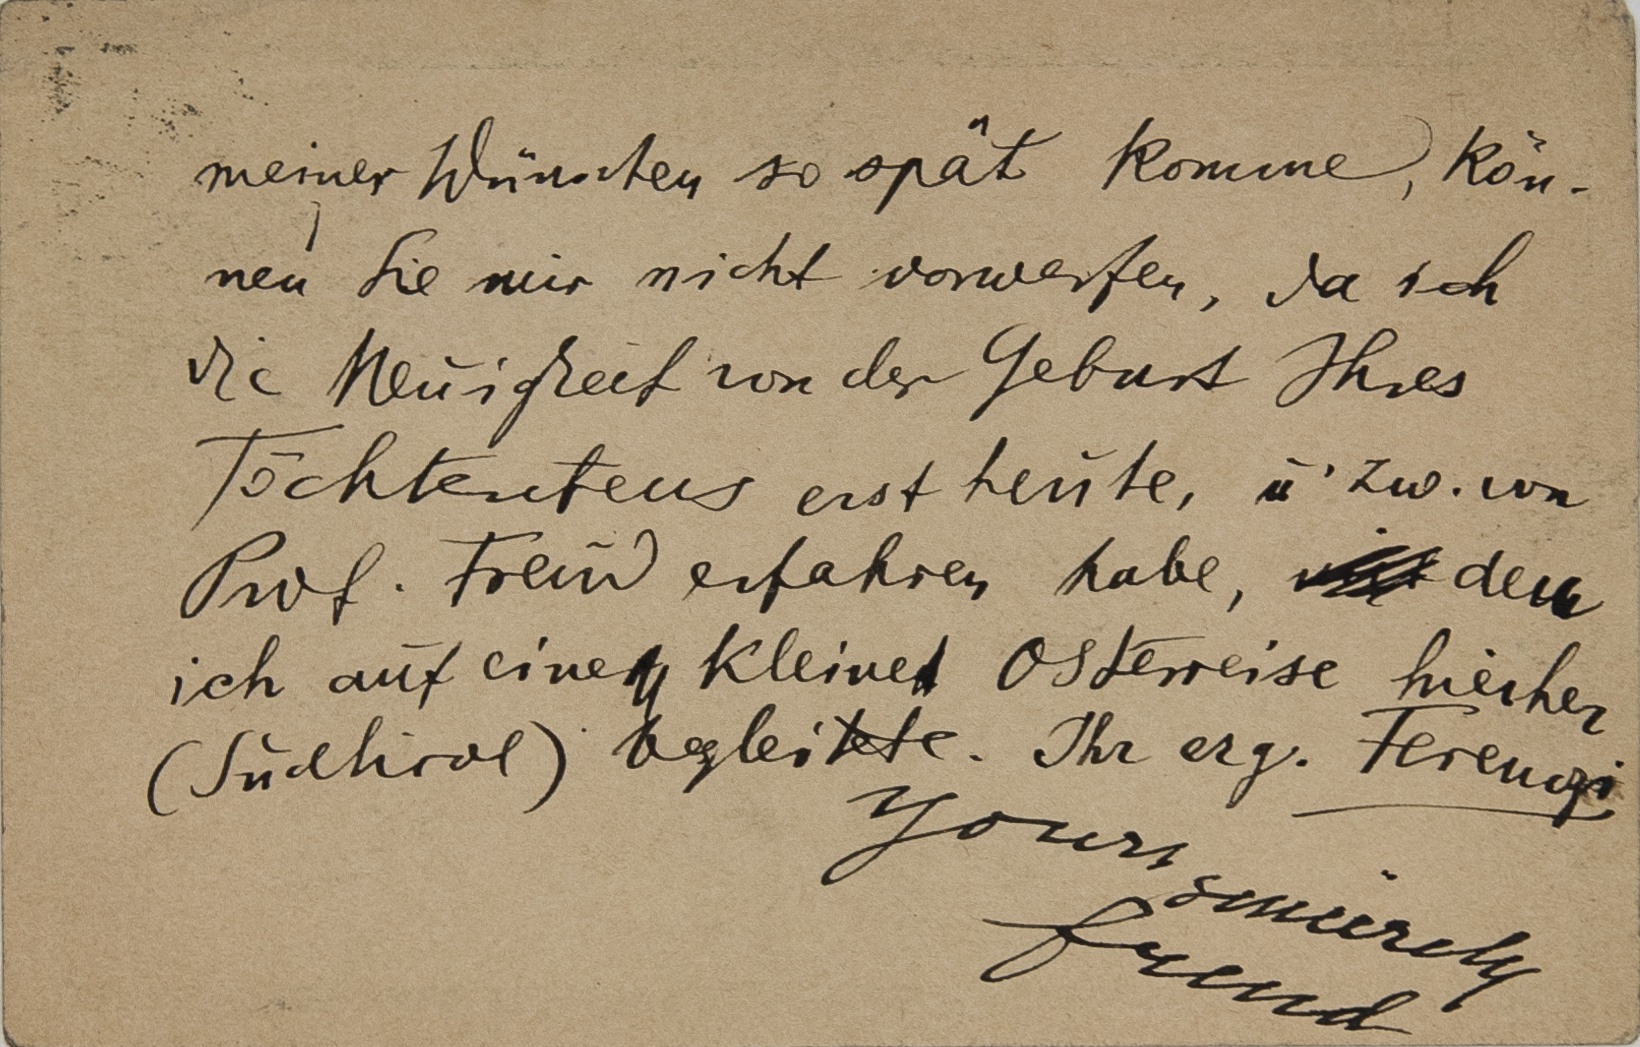 meiner Wünschen so spät komme, kön-
nen Sie mir nicht vorwerfen, da ich
die Neuigkeit von der Geburt Ihres
erst heute, u. zw. von
Prof. Freud erfahren habe, den
ich auf einer kleinen Osterreise hierher
(Südtirol) begleitete. Ihr erg. Ferenczi
Yours
sincerely
freud